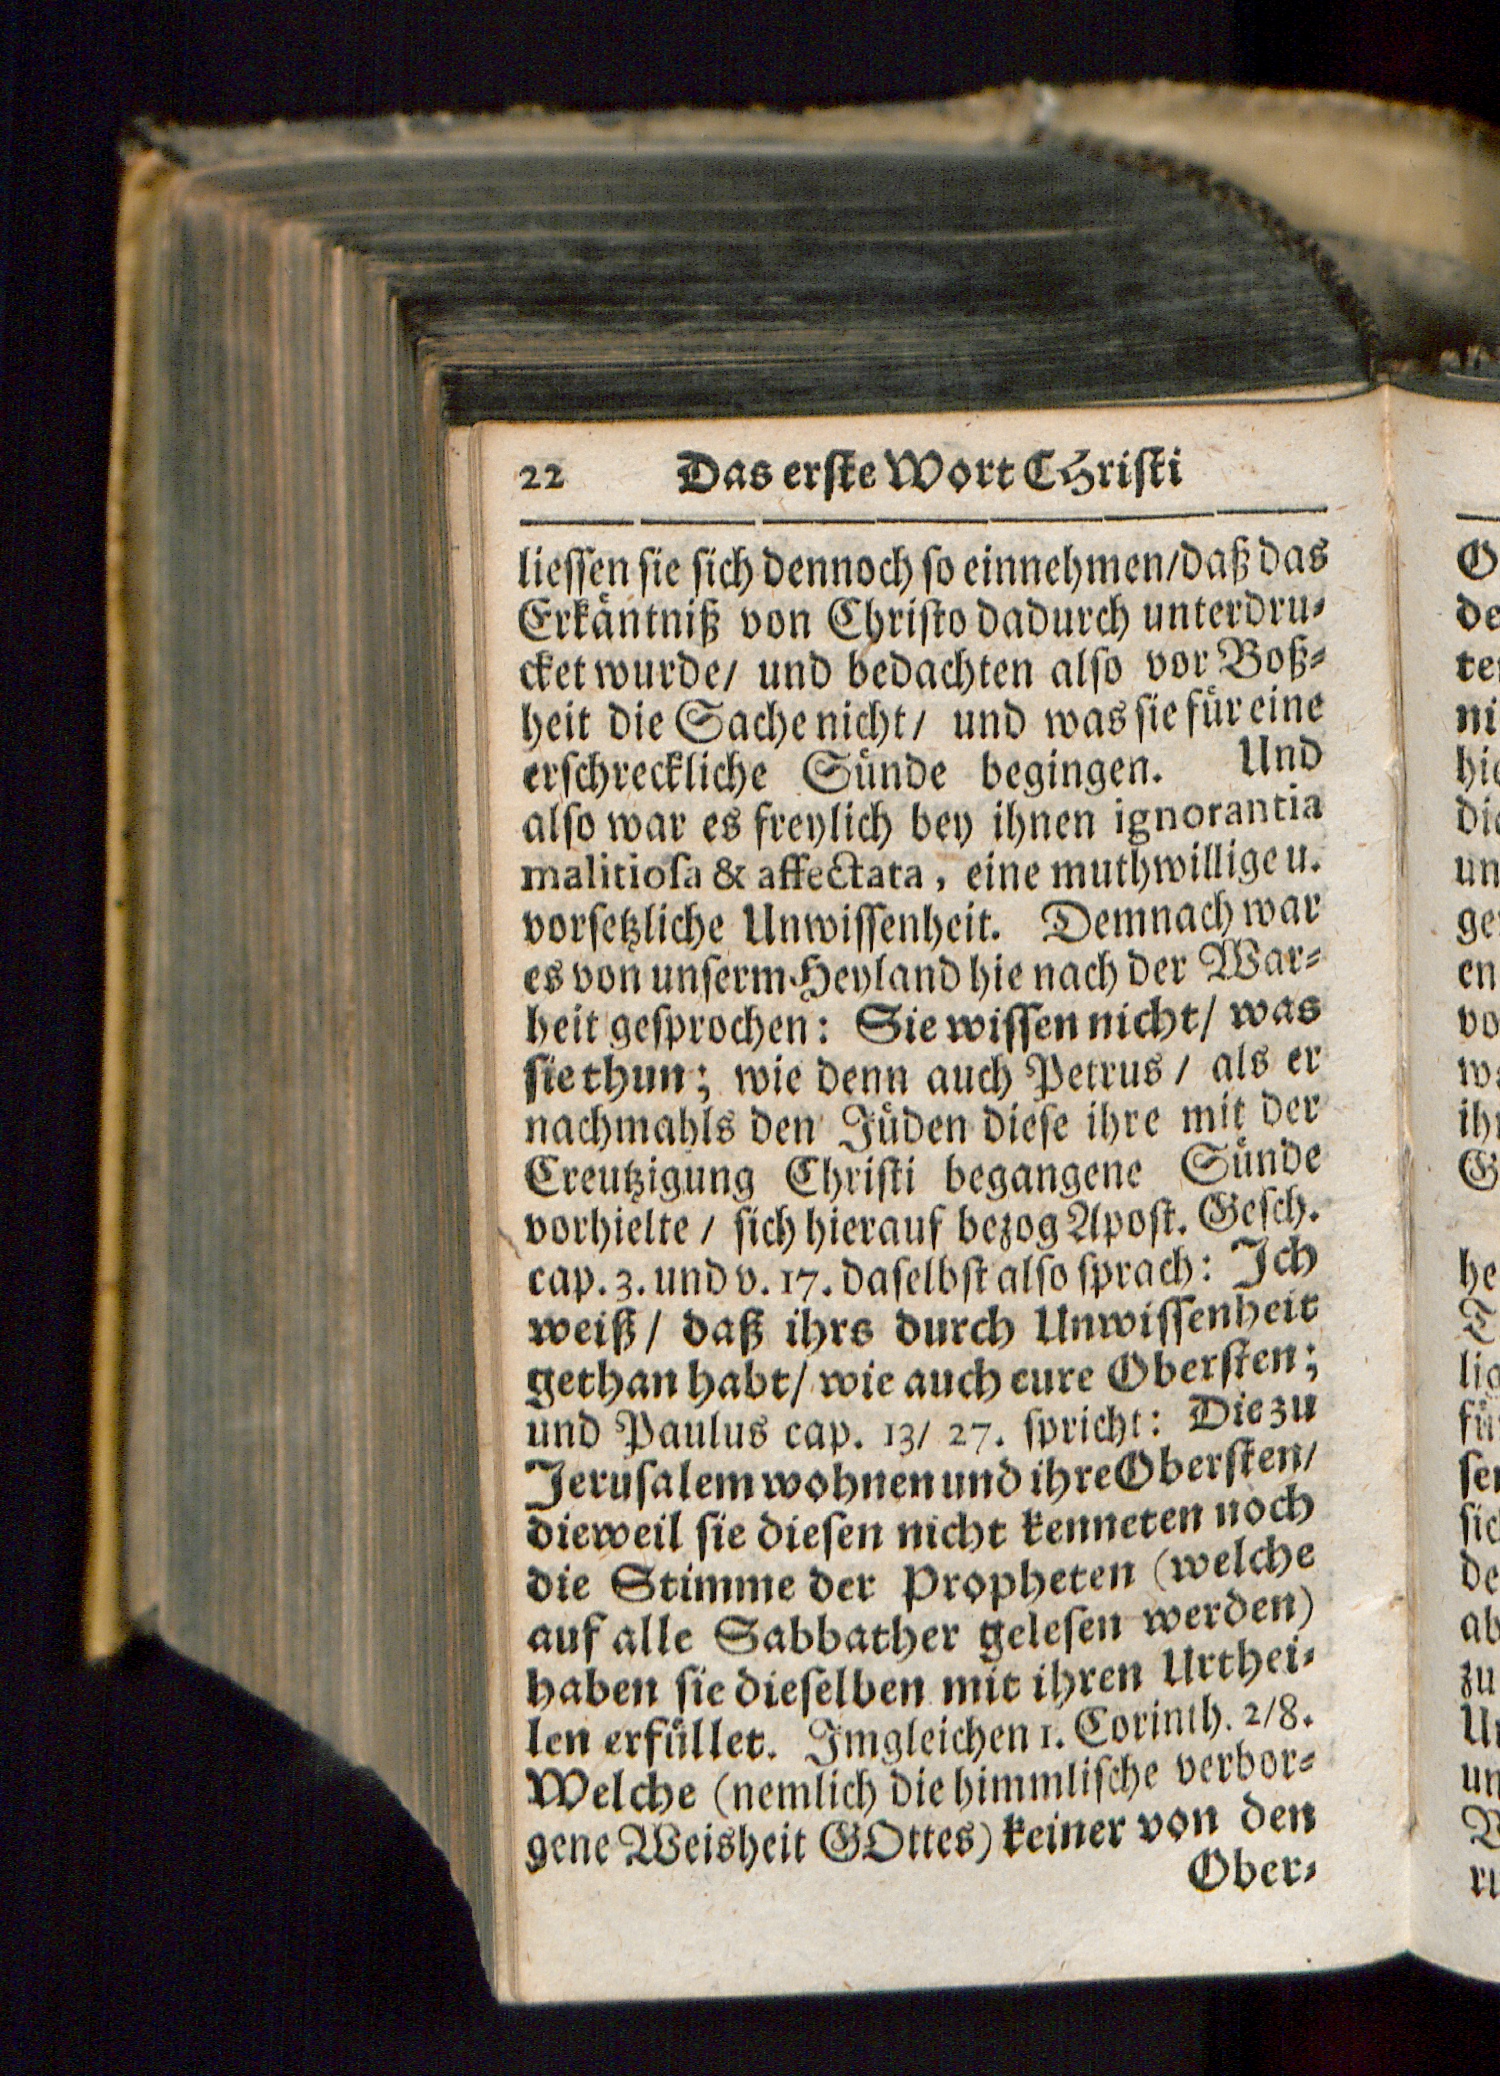 22 Das erste Wort CHristi
liessen sie sich dennoch so einnehmen/daß das
Erkäntniß von Christo dadurch unterdru-
cket wurde/ und bedachten also vor Boß-
heit die Sache nicht/ und was sie für eine
erschreckliche Sünde begingen. Und
also war es freylich bey ihnen ignorantia
malitiosa & affectata, eine muthwillige u.
vorsetzliche Unwissenheit. Demnach war
es von unserm Heyland hie nach der War-
heit gesprochen: Sie wissen nicht/ was
sie thun; wie denn auch Petrus / als er
nachmahls den Jüden diese ihre mit der
Creutzigung Christi begangene Sünde
vorhielte / sich hierauf bezog Apost. Gesch.
cap. 3. und v. 17. daselbst also sprach: Ich
weiß/ daß ihrs durch Unwissenheit
gethan habt/ wie auch eure Obersten;
und Paulus cap. 13/ 27. spricht: Die zu
Jerusalem wohnen und ihre Obersten/
dieweil sie diesen nicht kenneten noch
die Stimme der Propheten (welche
auf alle Sabbather gelesen werden)
haben sie dieselben mit ihren Urthei-
len erfüllet. Imgleichen 1. Corinth. 2/8.
Welche (nemlich die himmlische verbor-
gene Weisheit GOttes) keiner von den
Ober-